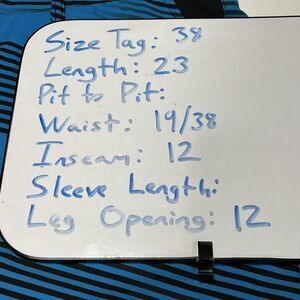 Size Tag: 38
Length: 23
Pit to Pit:
Waist: 19/38
Inseam: 12
Sleeve Length:
Leg Opening: 12